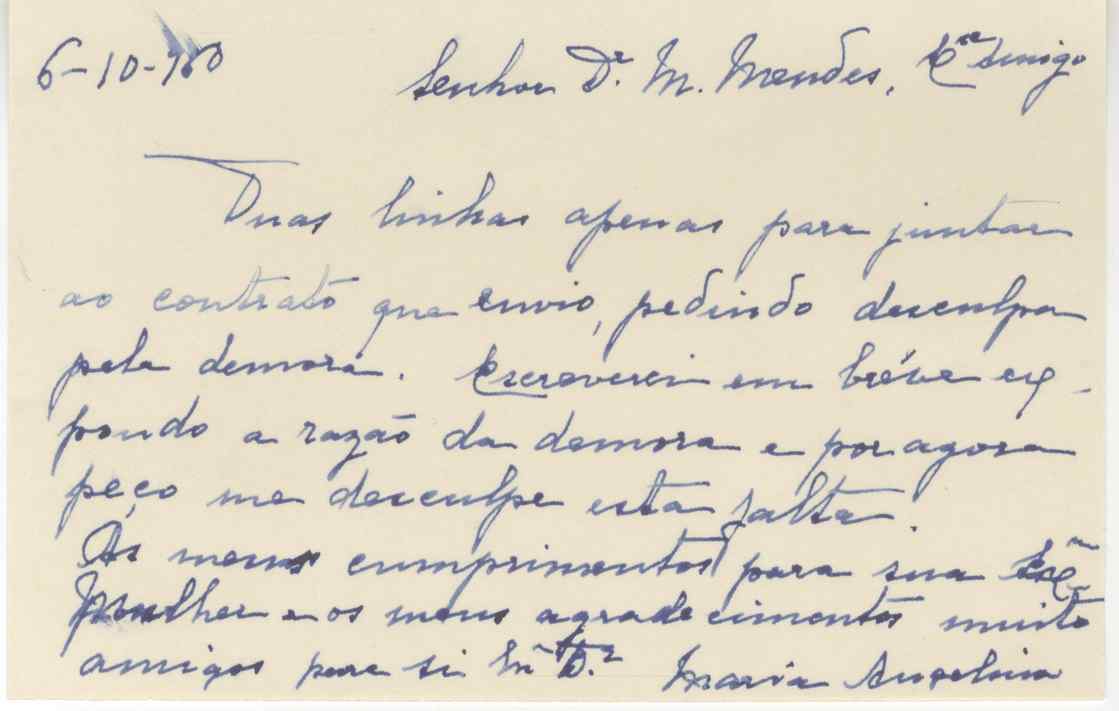 6-10-960
Senhor Dr. M. Mendes, Exmo Amigo
Duas linhas apenas para juntar
ao contrato que envio, pedindo desculpa
pela demora. Escreverei em bréve ex-
pondo a razão da demora e por agora
peço me desculpe esta falta.
Os meus cumprimentos para sua Exma
Mulher e os meus agradecimentos muito
amigos para si Snr Dr. Maria Angelina